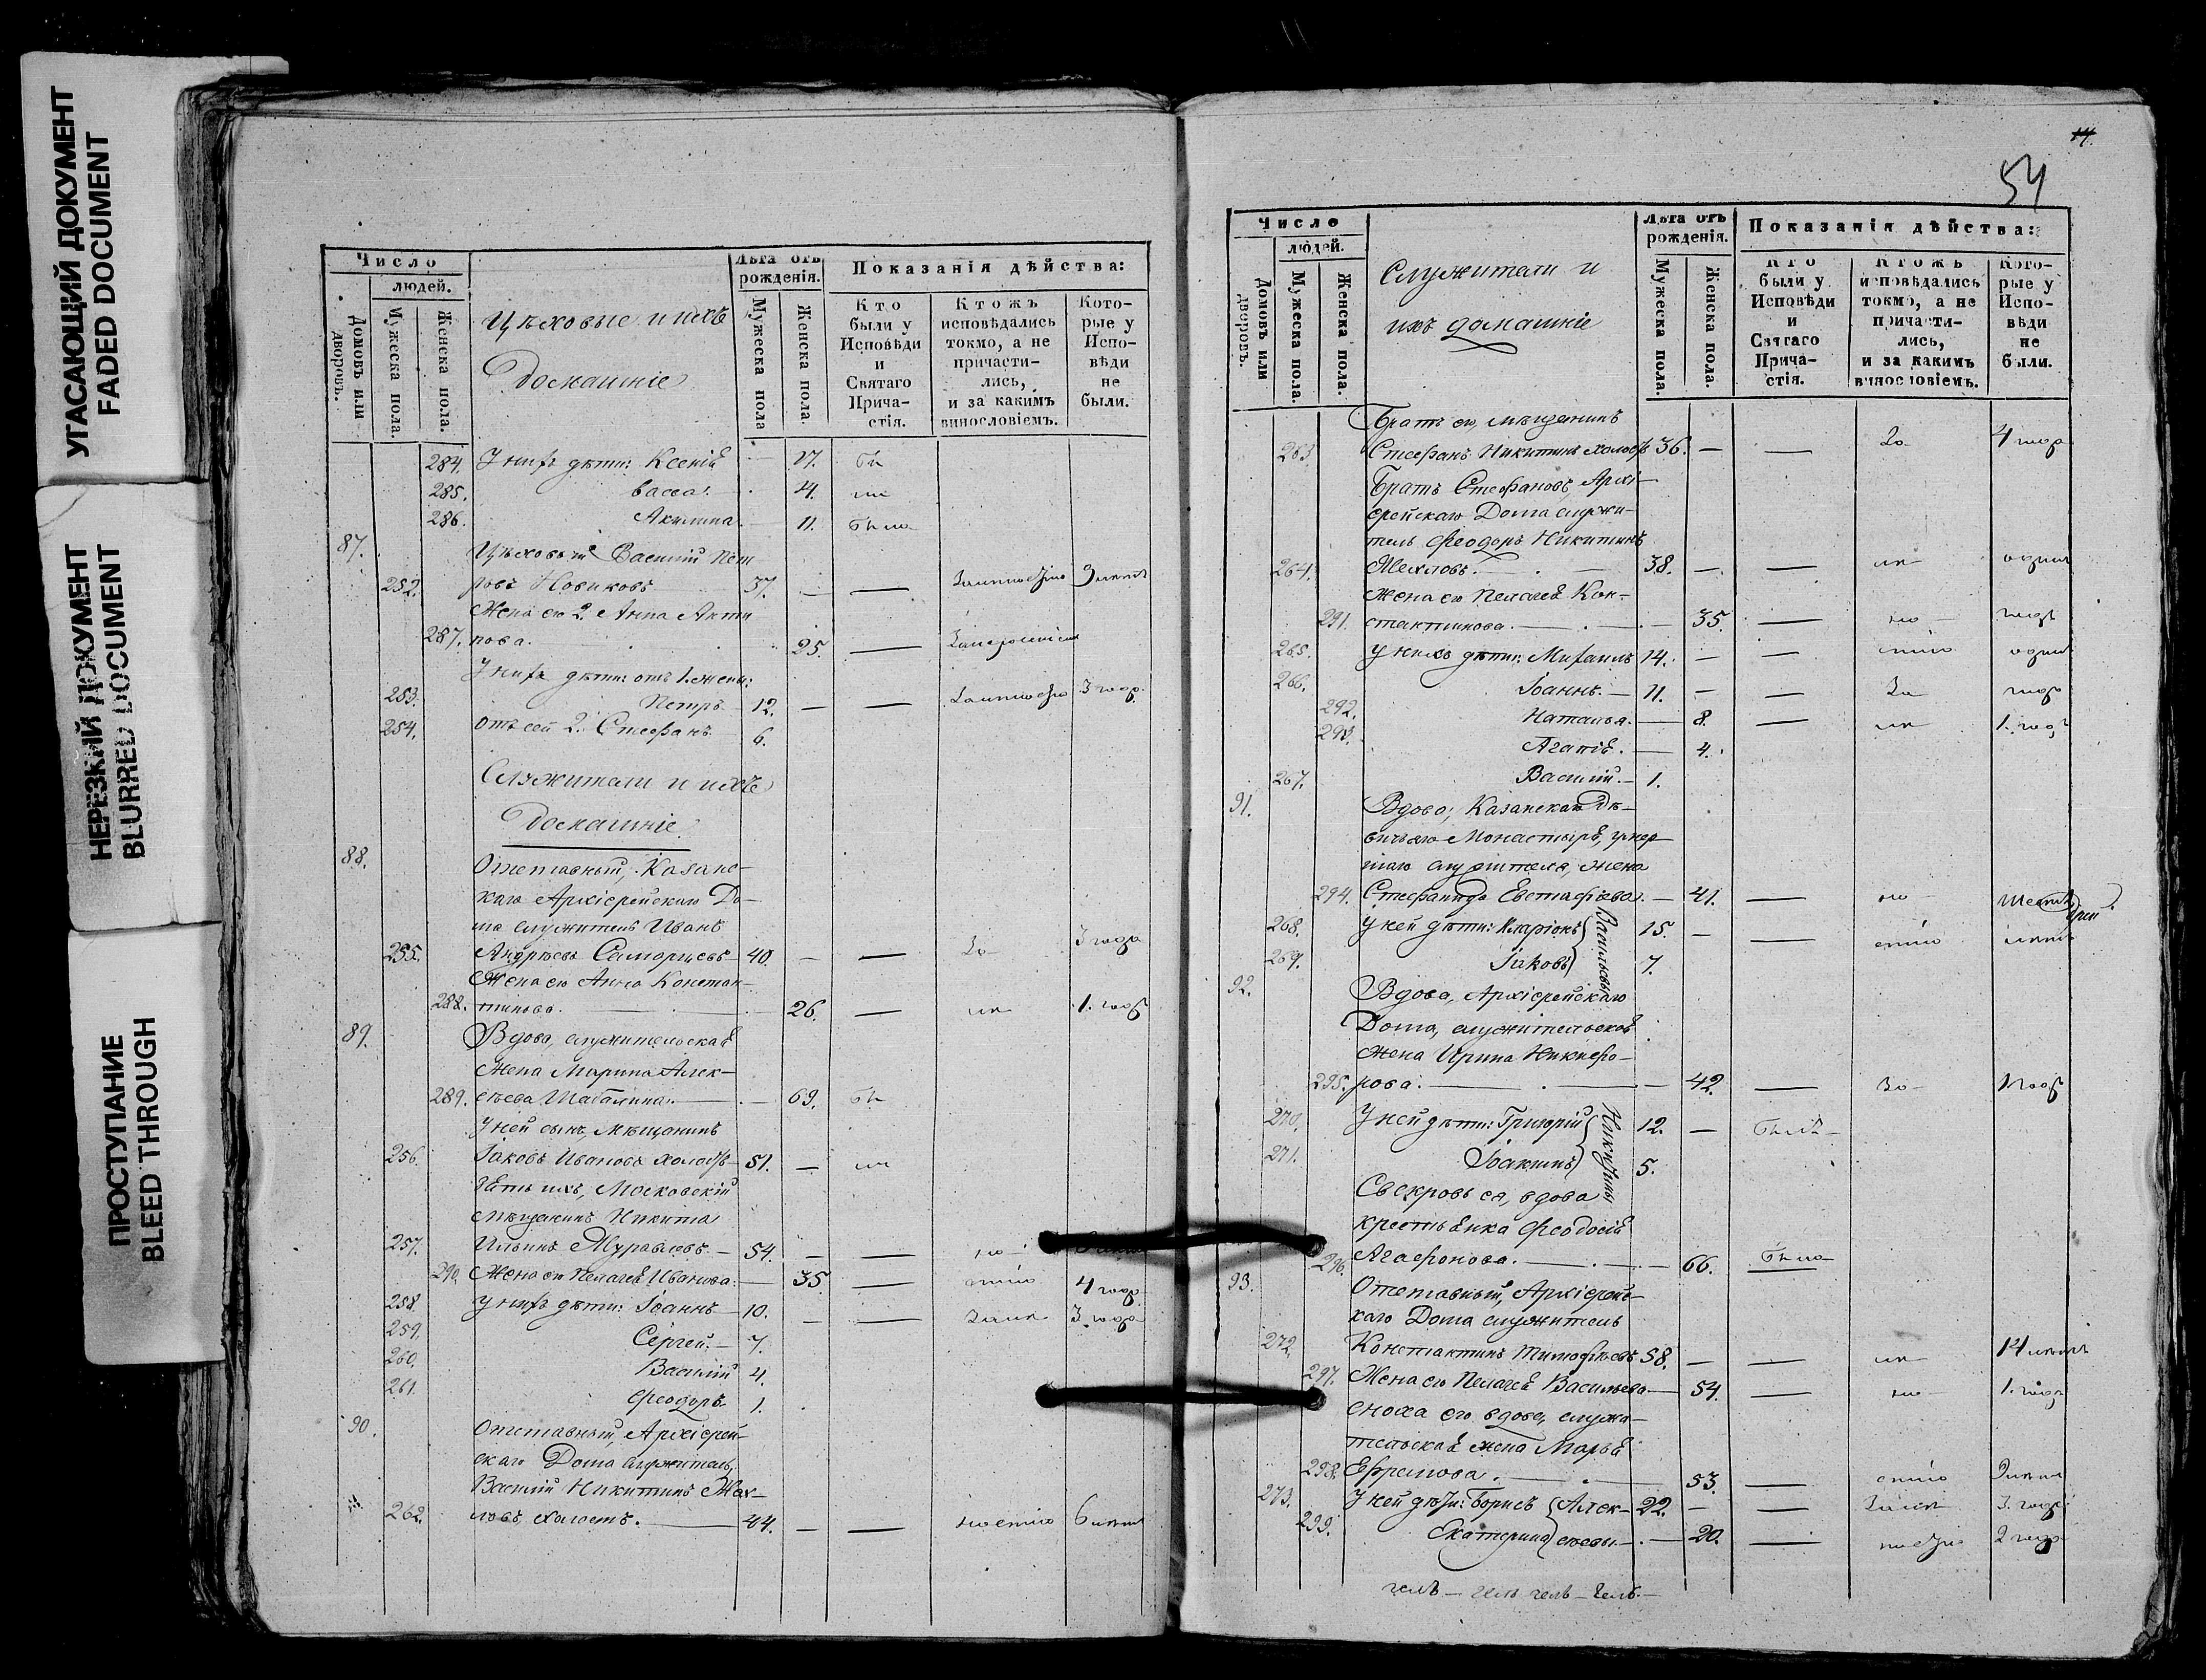 УГАСАЮЩИЙ ДОКУМЕНТ
FADED DOCUMENT
НЕРЕЗКИЙ ДОКУМЕНТ
BLURRED DOCUMENT
ПРОСТУПАНИЕ
BLEED THROUGH
Число
людей.
Домовъ или дворовъ.
Мужеска пола.
Женска пола.
Цѣховые и ихъ
домашніе
Лѣта отъ рожденія.
Мужеска пола
Женска пола
Показанія дѣйства:
Кто были у Исповѣди и Святаго Причастія.
Ктожъ исповѣдались токмо, а не причастились, и за какимъ винословіемъ.
Которые у Исповѣди не были.
284. У нихъ дѣти: Ксенія 17.
285. Васса. 4.
286. Акилина. 11.
87. Цѣховый Василій Пет
252. ровъ Новиковъ 37. —
Жена его 2. Анна Анти
287. пова. 25. —
У нихъ дѣти: отъ 1. жены:
253. Петръ 12. — — 3 года
254. отъ сей 2. Стефанъ 6.
Служители и ихъ
домашніе
88. Отставный, Казанс-
каго Архіерейскаго До-
ма служитель Иванъ
255. Андреевъ 40. — — 3 года
Жена его Анна Констан-
288. тинова. 26. — 1. годъ
89. Вдова, служительская
жена Марина Алек-
289. сѣева Шабалина. 69.
У ней сынъ, мѣщанинъ
256. Іаковъ Ивановъ 51. —
Зять ихъ, Московскій
мѣщанинъ Никита
257. Ильинъ Журавлевъ. — 54. — —
290. Жена его Пелагея Иванова. 35. — 4 года
258. У нихъ дѣти: Іоаннъ 10. — — 3. года
259. Сергей. — 7.
260. Василій 4.
261. Феодоръ 1.
90. Отставный, Архіерей-
скаго Дома служитель,
Василій Никитинъ
262. холостъ. 44. — — 6 лѣтъ
14.
54
Число
людей.
Домовъ или дворовъ.
Мужеска пола.
Женска пола.
Служители и
ихъ домашніе
Лѣта отъ рожденія.
Мужеска пола.
Женска пола.
Показанія дѣйства:
Кто были у Исповѣди и Святаго Причастія.
Ктожъ исповѣдались токмо, а не причастились, и за какимъ винословіемъ.
Которые у Исповѣди не были.
Братъ его, мѣщанинъ
263. Стефанъ Никитинъ 36. — — 4 года
Братъ Стефановъ, Архі-
ерейскаго Дома служи-
тель Феодоръ Никитинъ
264. 38. — — одинъ
Жена его Пелагея Кон-
291. стантинова. 35. — годъ
265. У нихъ дѣти: Михаилъ 14. — — одинъ
266. Іоаннъ. — 11. — — годъ
292. Наталья. — 8. — 1. годъ
293. Агапія. — 4.
267. Василій. — 1.
91. Вдова, Казанскаго Дѣ-
вичьяго Монастыря, умер
шаго служителя, жена
294. Стефанида Евстафіева. — 41. —
268. У ней дѣти: Иларіонъ 15. — —
Васильевы
269. Іаковъ 7.
92. Вдова, Архіерейскаго
Дома, служительская
жена Ирина Никифо-
295. рова. 42. — 1 годъ
270. У ней дѣти: Григорій 12. —
271. Іоакимъ 5.
Свекровь ея, вдова
крестьянка Феодосія
296. Агафонова. 66.
93. Отставный, Архіерейс-
каго Дома служитель
272. Константинъ Тимофѣевъ 58. — — 14 лѣтъ
297. Жена его Пелагея Васильева 54. — 1. годъ
Сноха его вдова, служи-
тельская жена Марья
298. Ефремова. 53. —
273. У ней дѣти: Борисъ Алек- 22. — — 3. года
299. Екатерина сѣевы. 20. — 2 года